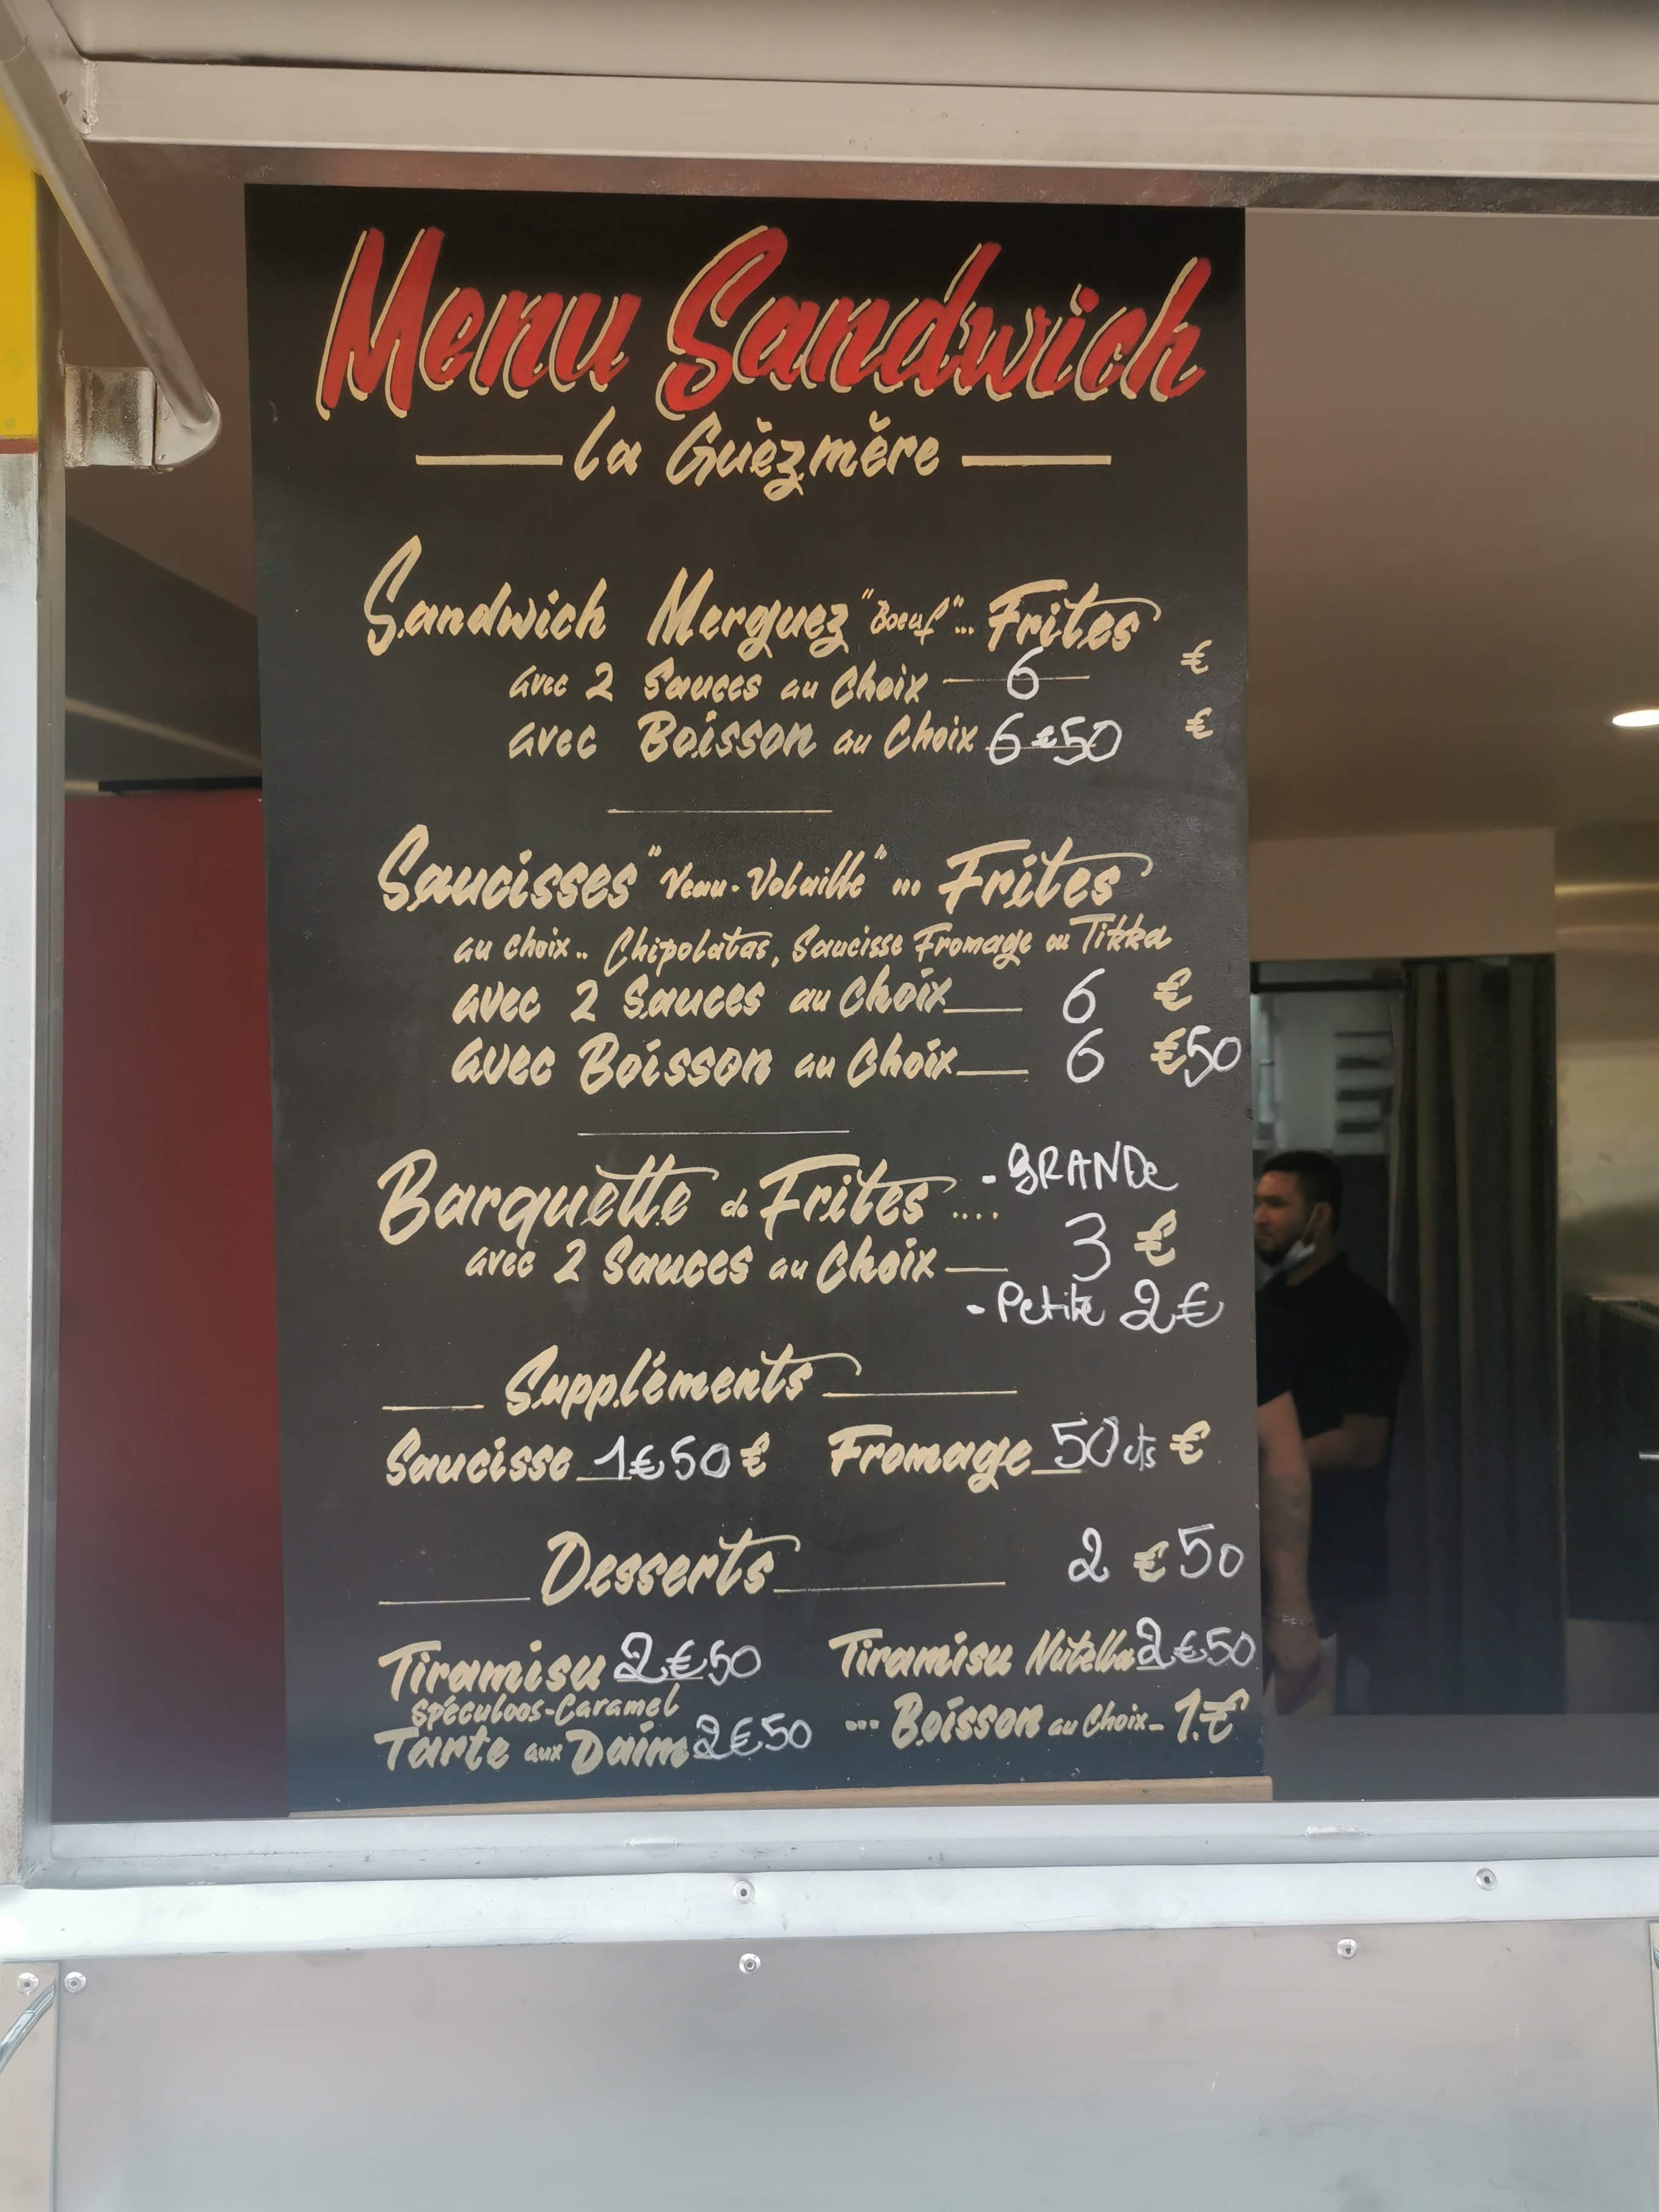 Menu Sandwich
La Guèzmère
Sandwich Merguez "Boeuf"... Frites
avec 2 Sauces au Choix 6 €
avec Boisson au Choix 6€50 €
Saucisses "Veau-Volaille" ... Frites
au choix.. Chipolatas, Saucisse Fromage ou Tikka
avec 2 Sauces au Choix 6 €
avec Boisson au Choix 6 €50
Barquette de Frites .... - GRANDe
avec 2 Sauces au Choix 3 €
- Petite 2€
Suppléments
Saucisse 1€50 € Fromage 50 cts €
Desserts 2 €50
Tiramisu 2€50 Tiramisu Nutella 2€50
Spéculoos-Caramel
Tarte aux Daim 2€50 ... Boisson au Choix - 1.€